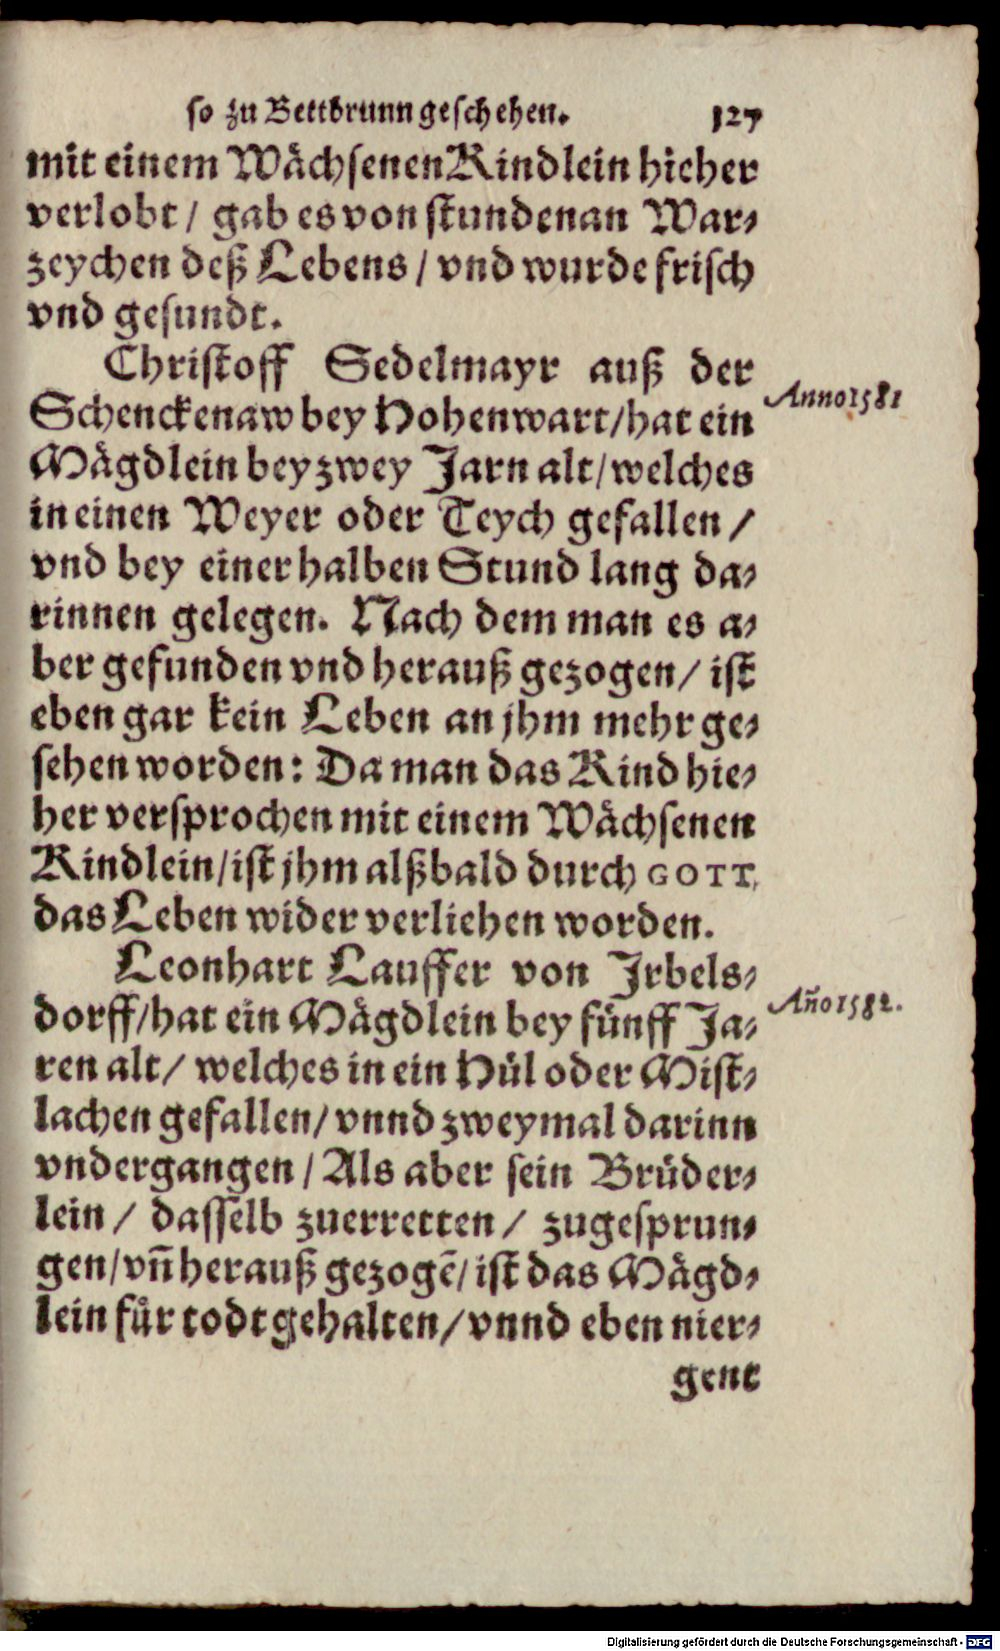 so zu Bettbrunn geschehen. 127
mit einem Wächsenen Kindlein hieher
verlobt / gab es von stunden an War-
zeychen deß Lebens / vnd wurde frisch
vnd gesundt.
Christoff Sedelmayr auß der
Anno 1581
Schenckenaw bey Hohenwart / hat ein
Mägdlein bey zwey Jarn alt / welches
in einen Weyer oder Teych gefallen /
vnd bey einer halben Stund lang da-
rinnen gelegen. Nach dem man es a-
ber gefunden vnd herauß gezogen / ist
eben gar kein Leben an jhm mehr ge-
sehen worden: Da man das Kind hie-
her versprochen mit einem Wächsenen
Kindlein / ist jhm alßbald durch GOTT,
das Leben wider verliehen worden.
Leonhart Lauffer von Jrbels-
Año 1582.
dorff / hat ein Mägdlein bey fünff Ja-
ren alt / welches in ein Hül oder Mist-
lachen gefallen / vnnd zweymal darinn
vndergangen / Als aber sein Brüder-
lein / dasselb zuerretten / zugesprun-
gen / vñ herauß gezogẽ / ist das Mägd-
lein für todt gehalten / vnnd eben nier-
gent
Digitalisierung gefördert durch die Deutsche Forschungsgemeinschaft - DFG